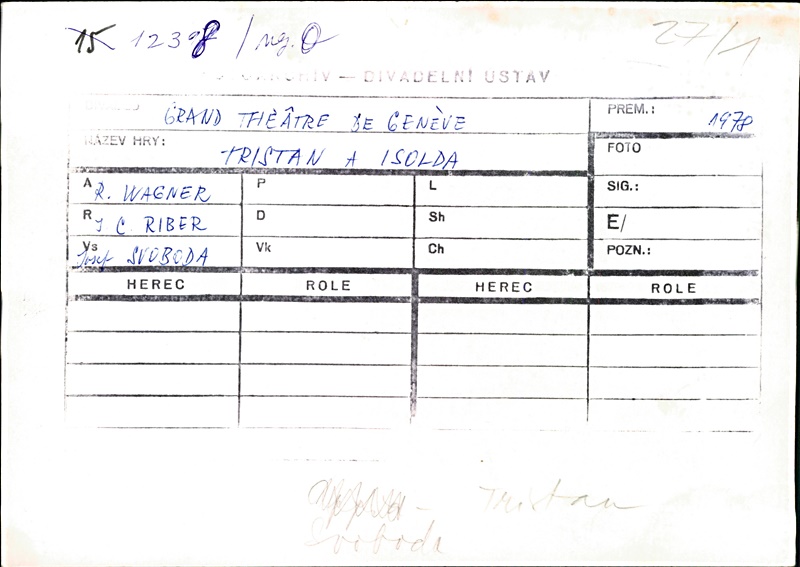 15 1238 / neg. O
27/1
ARCHIV — DIVADELNÍ ÚSTAV
GRAND THÉÂTRE DE GENÈVE
PREM.: 1978
NÁZEV HRY: TRISTAN A ISOLDA
FOTO
A R. WAGNER P L SIG.:
R J C. RIBER D Sh E/
Vs Josef SVOBODA Vk Ch POZN.:
HEREC ROLE HEREC ROLE
– Tristan
Svoboda